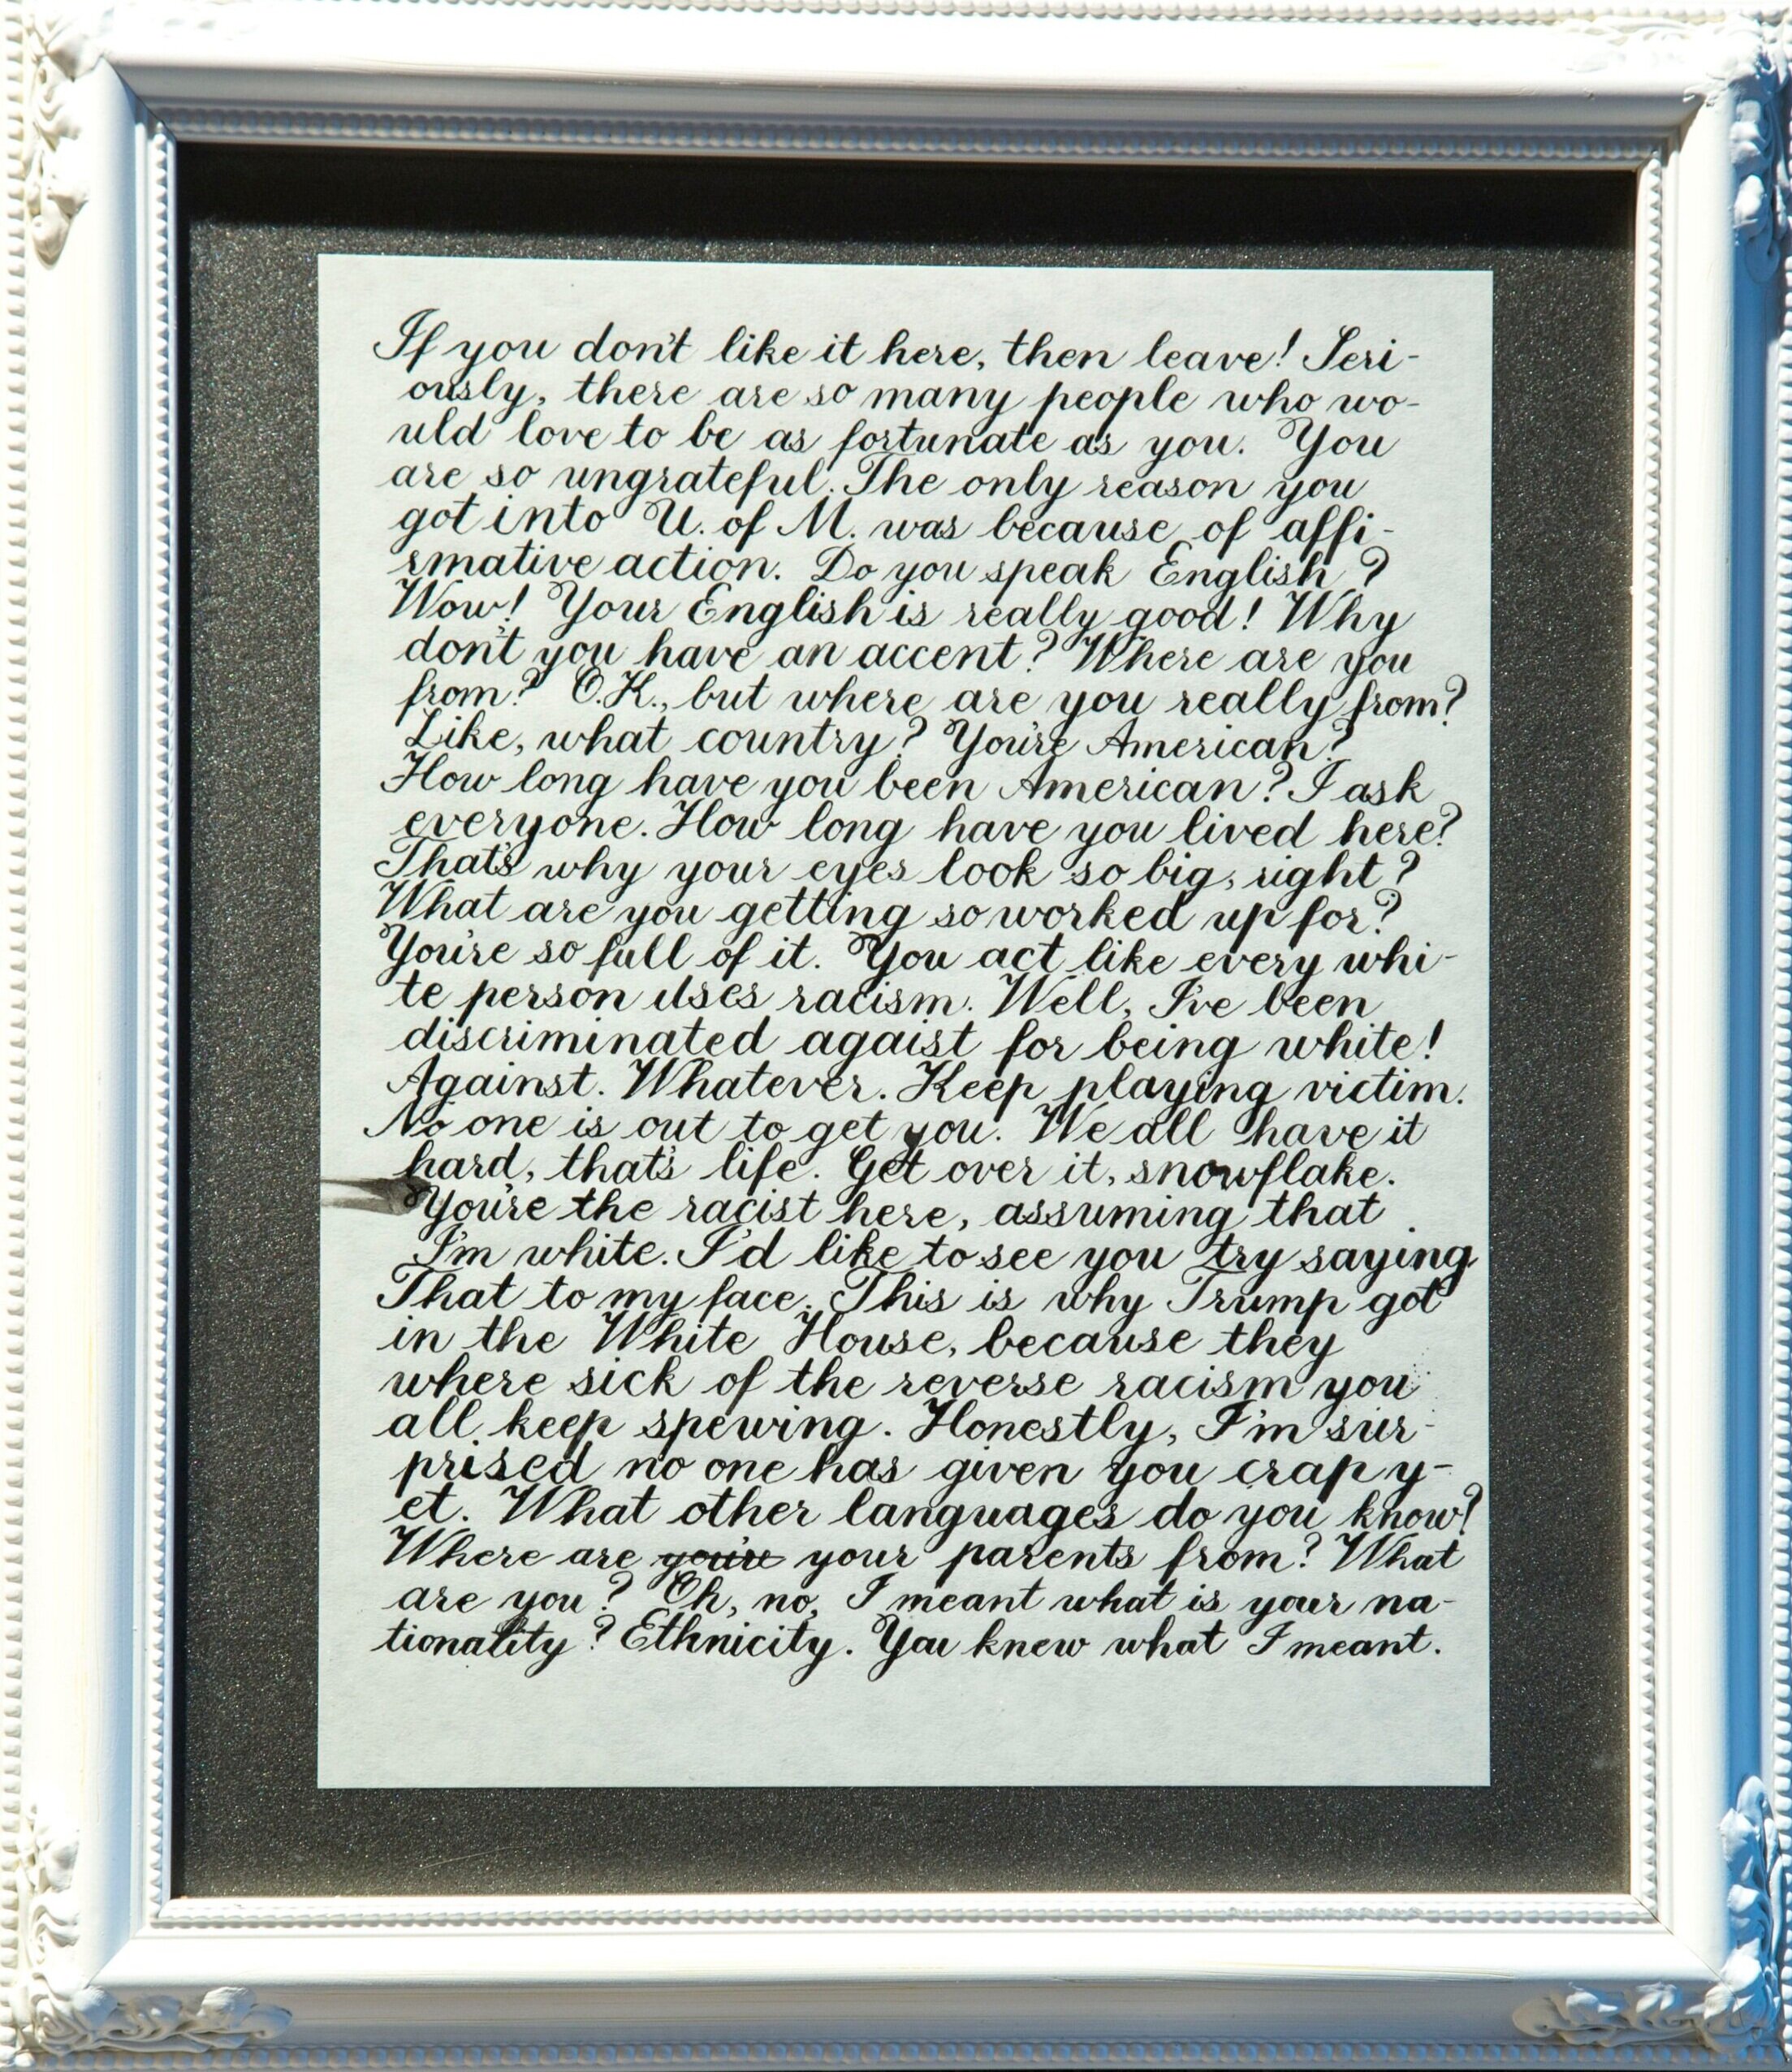 If you don't like it here, then leave! Seri-
ously, there are so many people who wo-
uld love to be as fortunate as you. You
are so ungrateful. The only reason you
got into U. of M. was because of affi-
rmative action. Do you speak English?
Wow! Your English is really good! Why
don't you have an accent? Where are you
from? O.K., but where are you really from?
Like, what country? You're American?
How long have you been American? I ask
everyone. How long have you lived here?
That's why your eyes look so big, right?
What are you getting so worked up for?
You're so full of it. You act like every whi-
te person uses racism. Well, I've been
discriminated agaist for being white!
Against. Whatever. Keep playing victim.
No one is out to get you. We all have it
hard, that's life. Get over it, snowflake.
You're the racist here, assuming that
I'm white. I'd like to see you try saying
That to my face. This is why Trump got
in the White House, because they
where sick of the reverse racism you
all keep spewing. Honestly, I'm sur-
prised no one has given you crap y-
et. What other languages do you know?
Where are you're your parents from? What
are you? Oh, no, I meant what is your na-
tionality? Ethnicity. You knew what I meant.